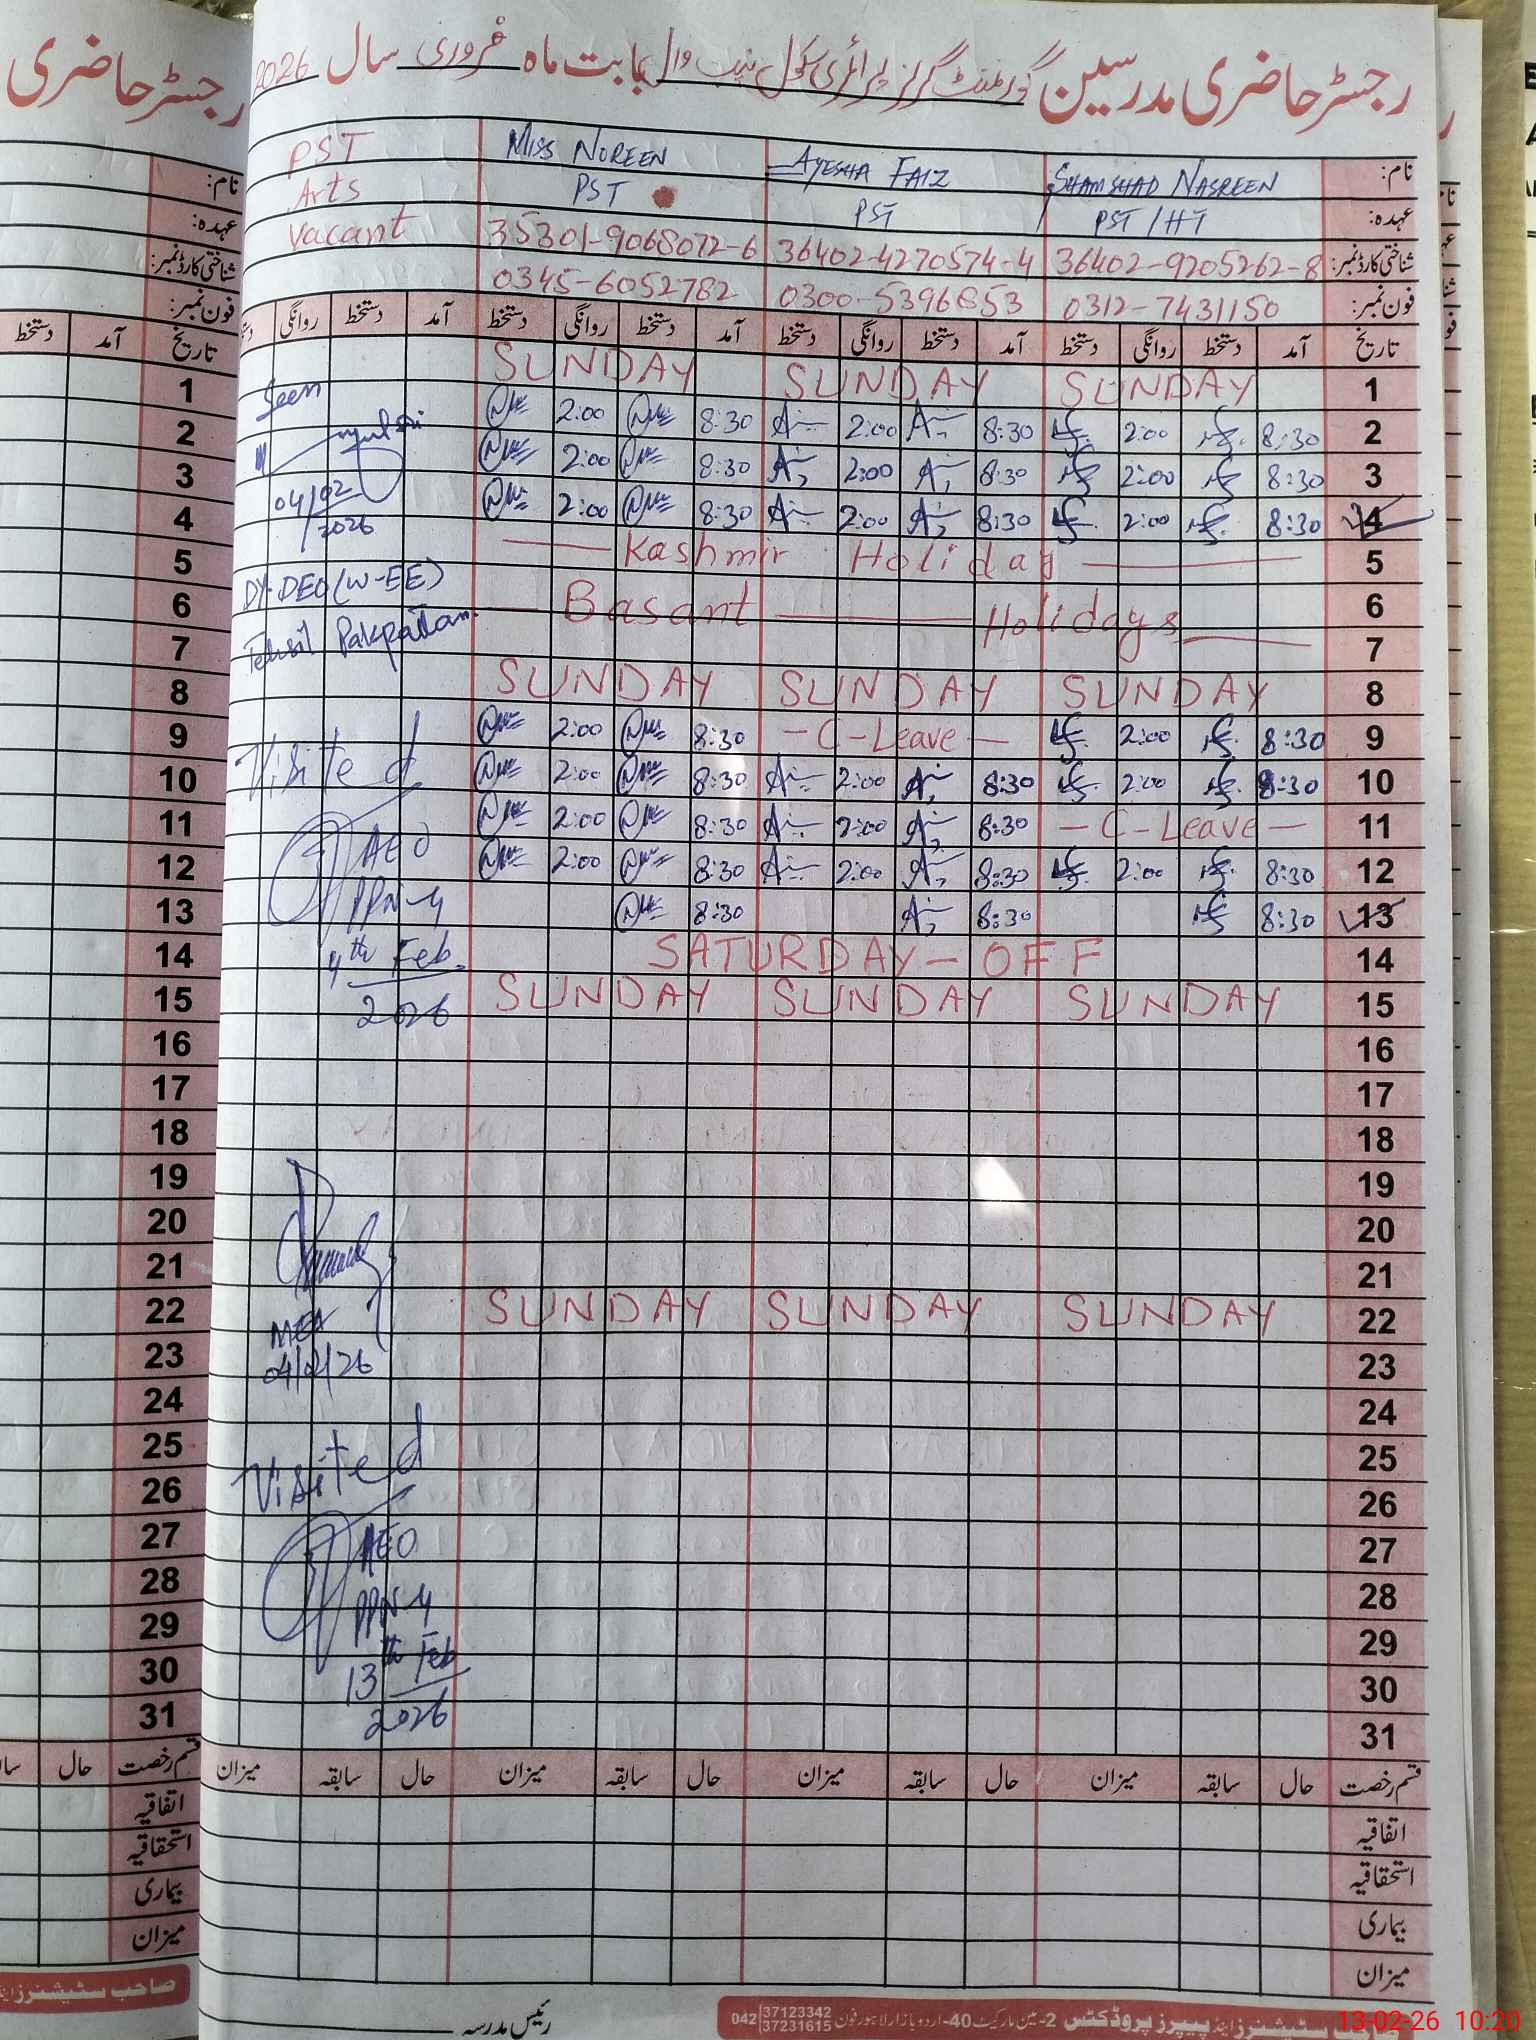 رجسٹر حاضری مدرسین گورنمنٹ گرلز پرائمری سکول بابت ماہ فروری سال 2026
نام: SHAMSHAD NASREEN AYESHA FAIZ MISS NOREEN PST
عہدہ: PST/HT PST PST Arts
شناختی کارڈ نمبر: 36402-9205262-8 36402-4270574-4 35301-9068072-6 Vacant
فون نمبر: 0312-7431150 0300-5396853 0345-6052782
تاریخ آمد دستخط روانگی دستخط آمد دستخط روانگی دستخط آمد دستخط روانگی دستخط آمد دستخط روانگی
1 SUNDAY SUNDAY SUNDAY 1
2 8:30 2:00 8:30 2:00 8:30 2:00 2
3 8:30 2:00 8:30 2:00 8:30 2:00 3
4 8:30 2:00 8:30 2:00 8:30 2:00 4
5 Kashmir Holiday 5
6 Basant Holidays 6
7 7
8 SUNDAY SUNDAY SUNDAY 8
9 8:30 2:00 - C-Leave - 8:30 2:00 9
10 8:30 2:00 8:30 2:00 8:30 2:00 10
11 - C-Leave - 8:30 2:00 8:30 2:00 11
12 8:30 2:00 8:30 2:00 8:30 2:00 12
13 8:30 8:30 8:30 13
14 SATURDAY - OFF 14
15 SUNDAY SUNDAY SUNDAY 15
16 16
17 17
18 18
19 19
20 20
21 21
22 SUNDAY SUNDAY SUNDAY 22
23 23
24 24
25 25
26 26
27 27
28 28
29 29
30 30
31 31
Seen
04/02
/2026
DY-DEO(W-EE)
Tehsil Pakpattan.
Visited
AEO
PPN-4
4th Feb.
2026
MEA
04/02/26
Visited
AEO
PPN-4
13th Feb
2026
قسم رخصت حال سابقہ میزان حال سابقہ میزان حال سابقہ میزان حال سابقہ میزان
اتفاقیہ
استحقاقیہ
بیماری
میزان
رئیس مدرسہ
سٹیشنرز اینڈ پیپرز پروڈکٹس 2-مین مارکیٹ 40-اردو بازار لاہور فون 042 37123342
37231615
رجسٹر حاضری
نام:
عہدہ:
شناختی کارڈ نمبر:
فون نمبر:
تاریخ آمد دستخط
قسم رخصت حال
اتفاقیہ
استحقاقیہ
بیماری
میزان
صاحب سٹیشنرز اینڈ
13-02-26 10:20